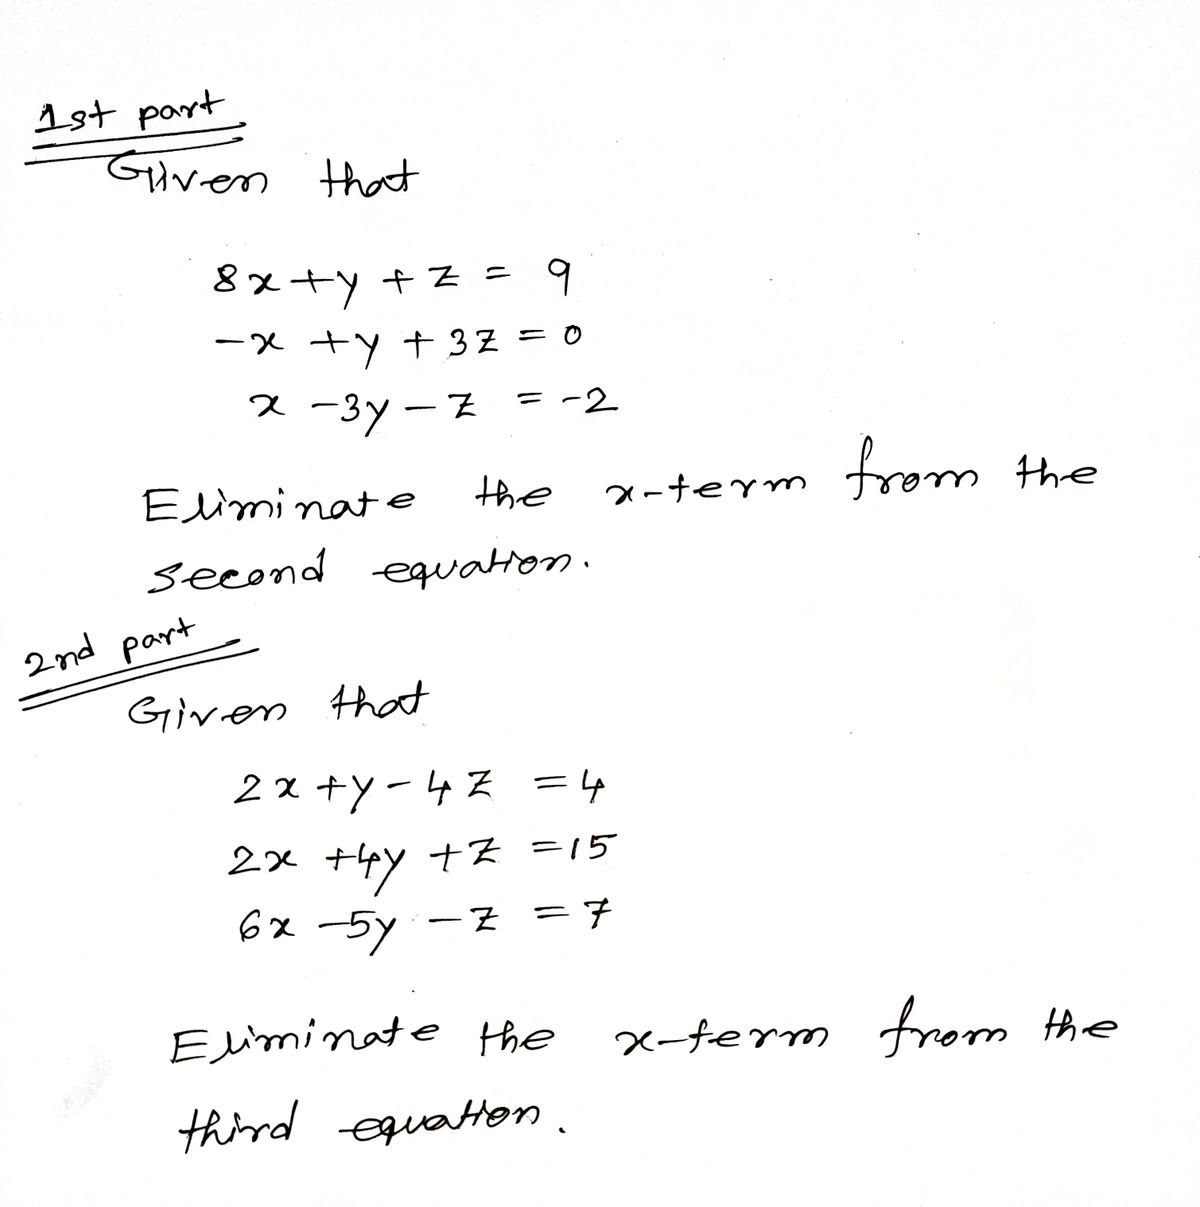 1st part
Given that
8x + y + z = 9
-x + y + 3z = 0
x - 3y - z = -2
Eliminate the x-term from the
second equation.
2nd part
Given that
2x + y - 4z = 4
2x + 4y + z = 15
6x - 5y - z = 7
Eliminate the x-term from the
third equation.